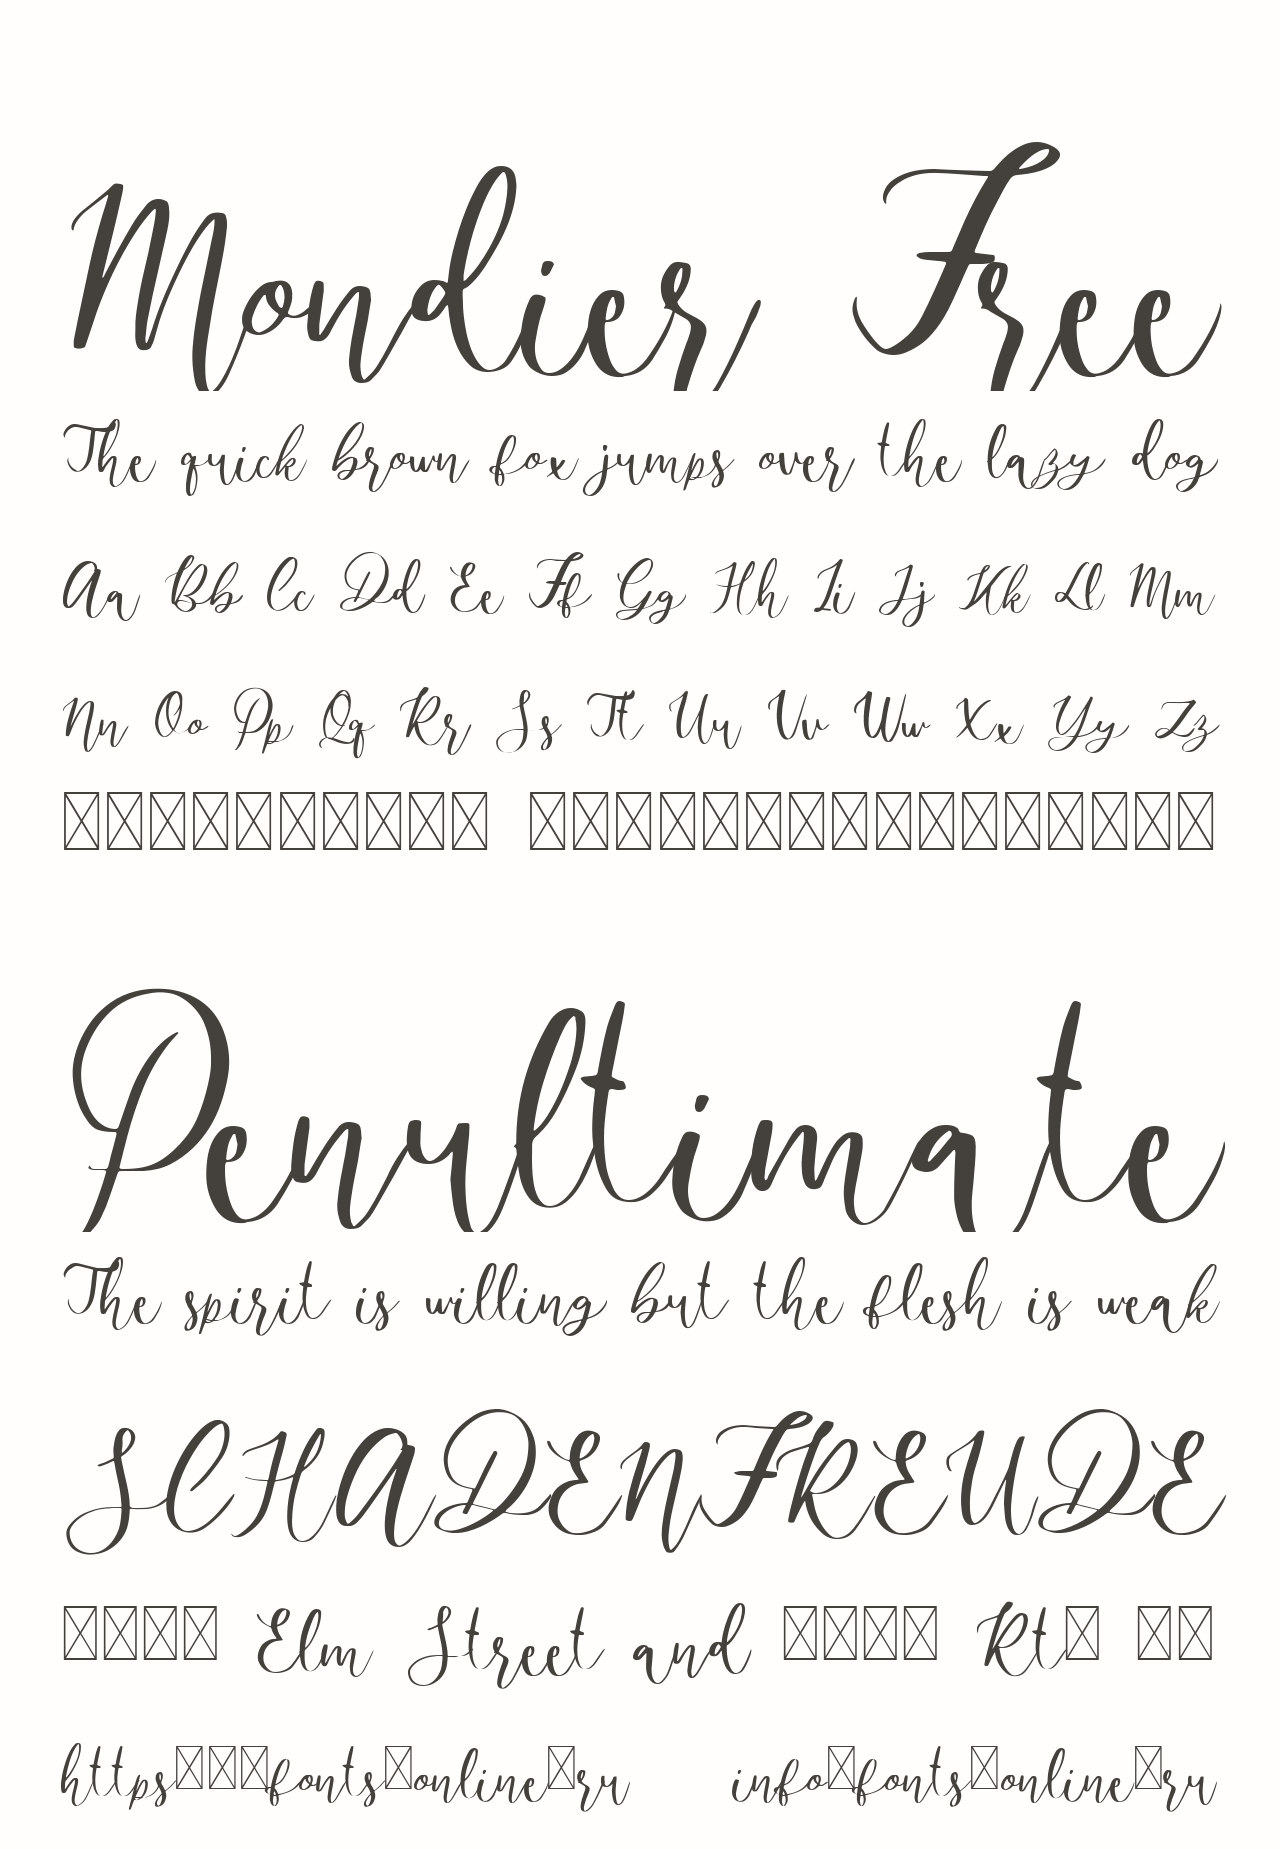 Mondier Free
The quick brown fox jumps over the lazy dog
Aa Bb Cc Dd Ee Ff Gg Hh Ii Jj Kk Ll Mm
Nn Oo Pp Qq Rr Ss Tt Uu Vv Ww Xx Yy Zz
Penultimate
The spirit is willing but the flesh is weak
SCHADENFREUDE
Elm Street and Rt
https fonts online ru info fonts online ru